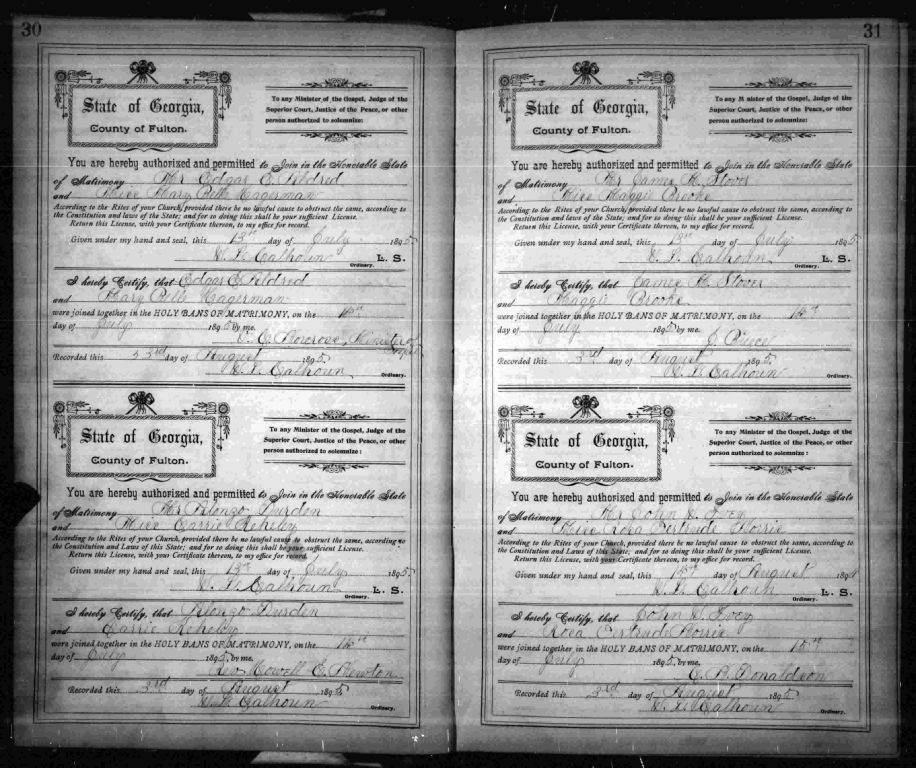 30
State of Georgia,
County of Fulton.
To any Minister of the Gospel, Judge of the
Superior Court, Justice of the Peace, or other
person authorized to solemnize:
You are hereby authorized and permitted to Join in the Honorable State
of Matrimony Mr Edgar E.
and Miss Mary Belle Hagerman
According to the Rites of your Church, provided there be no lawful cause to obstruct the same, according to
the Constitution and laws of the State; and for so doing this shall be your sufficient License.
Return this License, with your Certificate thereon, to my office for record.
Given under my hand and seal, this 13th day of July 1895
W. L. Calhoun L. S.
Ordinary.
I hereby Certify, that Edgar E.
and Mary Belle Hagerman
were joined together in the HOLY BANS OF MATRIMONY, on the
day of July 1895 by me.
Recorded this 3rd day of August 1895
W. L. Calhoun
Ordinary.
State of Georgia,
County of Fulton.
To any Minister of the Gospel, Judge of the
Superior Court, Justice of the Peace, or other
person authorized to solemnize:
You are hereby authorized and permitted to Join in the Honorable State
of Matrimony Mr Alonzo Durden
and Miss Carrie
According to the Rites of your Church, provided there be no lawful cause to obstruct the same, according to
the Constitution and Laws of this State; and for so doing this shall be your sufficient License.
Return this License, with your Certificate thereon, to my office for record.
Given under my hand and seal, this 13th day of July 1895
W. L. Calhoun L. S.
Ordinary.
I hereby Certify, that Alonzo Durden
and Carrie
were joined together in the HOLY BANS OF MATRIMONY, on the
day of July 1895, by me.
Rev Howell E. Newton
Recorded this 3rd day of August 1895
W. L. Calhoun
Ordinary.
31
State of Georgia,
County of Fulton.
To any Minister of the Gospel, Judge of the
Superior Court, Justice of the Peace, or other
person authorized to solemnize:
You are hereby authorized and permitted to Join in the Honorable State
of Matrimony Mr James H. Stover
and Miss Maggie Brooks
According to the Rites of your Church, provided there be no lawful cause to obstruct the same, according to
the Constitution and laws of the State; and for so doing this shall be your sufficient License.
Return this License, with your Certificate thereon, to my office for record.
Given under my hand and seal, this 13th day of July 1895
W. L. Calhoun L. S.
Ordinary.
I hereby Certify, that James H. Stover
and Maggie Brooks
were joined together in the HOLY BANS OF MATRIMONY, on the
day of July 1895 by me.
Recorded this 3rd day of August 1895
W. L. Calhoun
Ordinary.
State of Georgia,
County of Fulton.
To any Minister of the Gospel, Judge of the
Superior Court, Justice of the Peace, or other
person authorized to solemnize:
You are hereby authorized and permitted to Join in the Honorable State
of Matrimony Mr John S. Ivey
and Miss Rosa Gertrude Morris
According to the Rites of your Church, provided there be no lawful cause to obstruct the same, according to
the Constitution and laws of this State; and for so doing this shall be your sufficient License.
Return this License, with your Certificate thereon, to my office for record.
Given under my hand and seal, this 15th day of August 189
W. L. Calhoun L. S.
Ordinary.
I hereby Certify, that John S. Ivey
and Rosa Gertrude Morris
were joined together in the HOLY BANS OF MATRIMONY, on the 15th
day of July 1895, by me.
E. B. Donaldson
Recorded this 3rd day of August 1895
W. L. Calhoun
Ordinary.